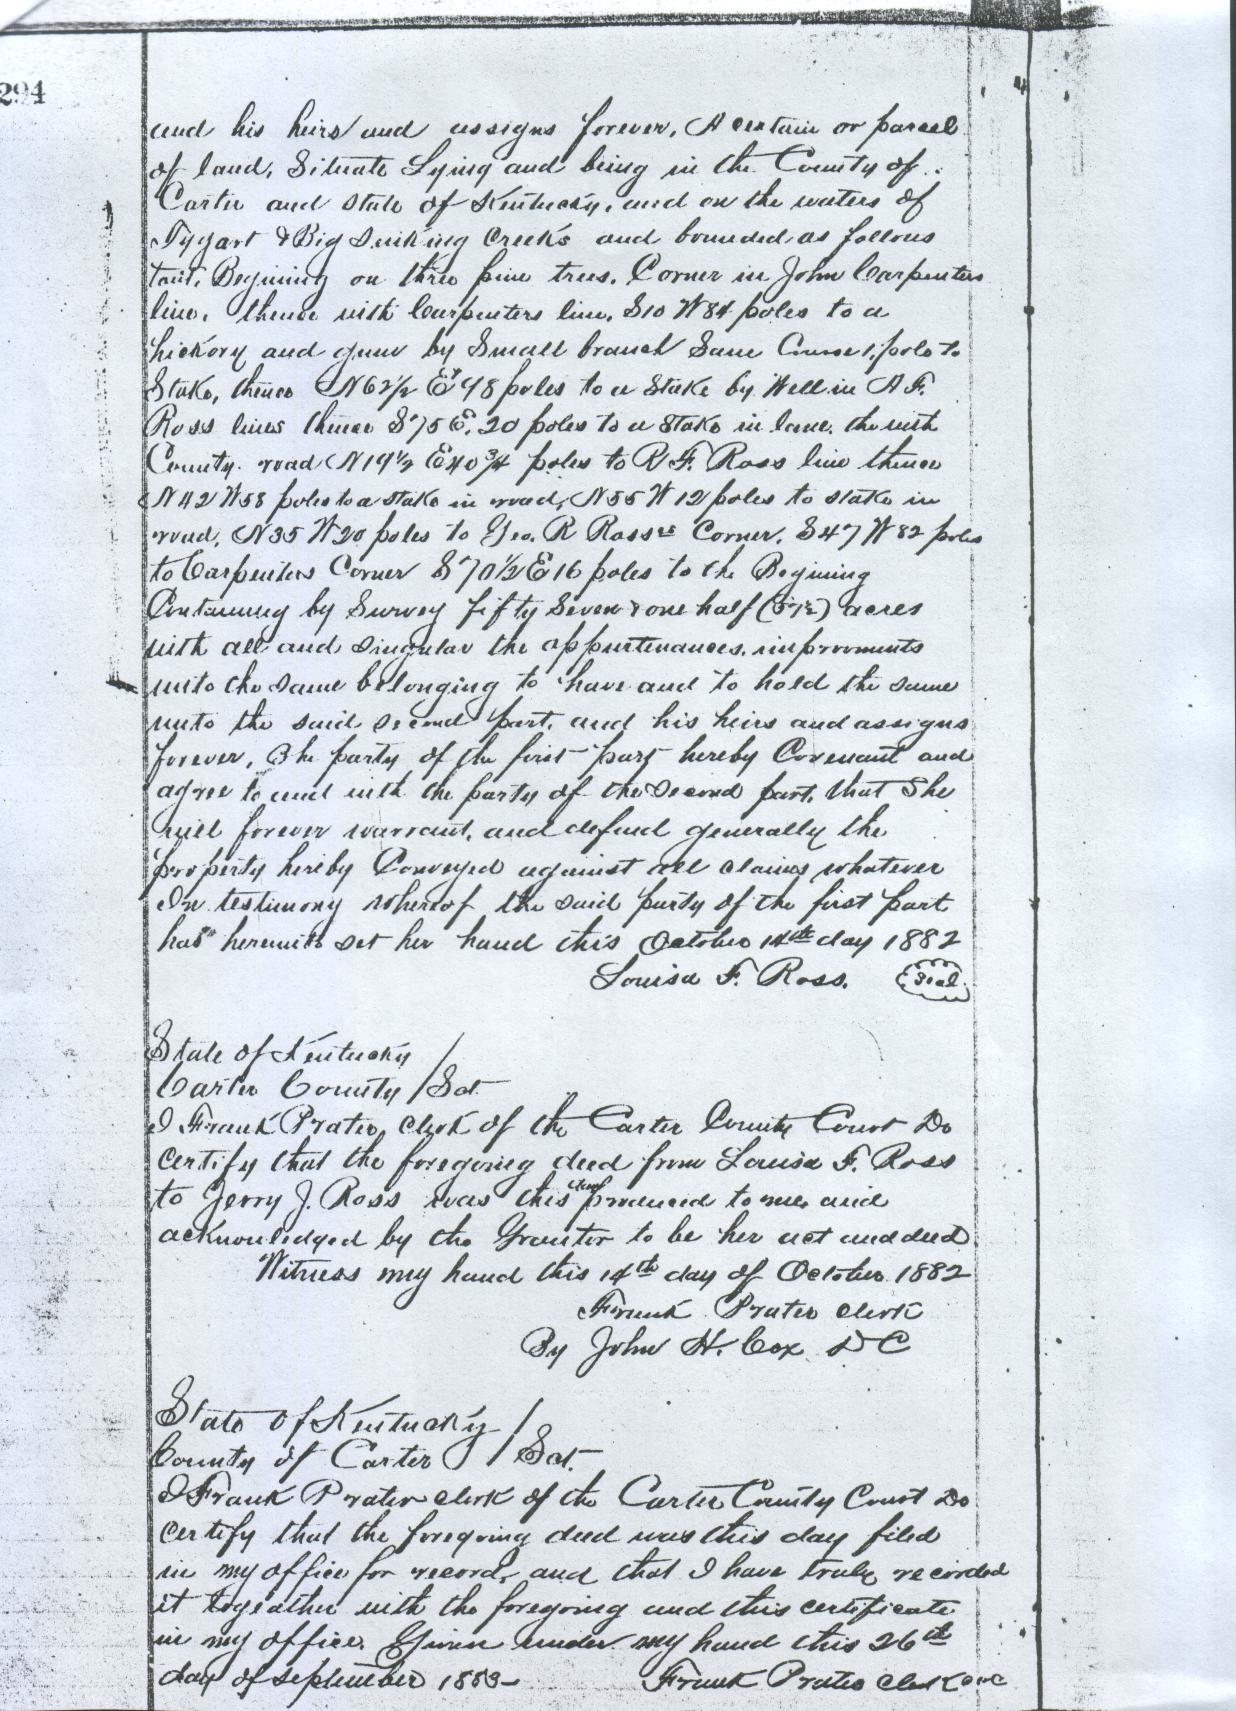 294
and his heirs and assigns forever, A certain or parcel
of land, Situate Lying and being in the County of
Carter and state of Kentucky, and on the waters of
Tygart & Big Sinking Creeks and bounded as follows
towit, Begining on three pine trees, Corner in John Carpenters
line, thence with Carpenters line, S10 W 84 poles to a
hickory and gum by Small branch Same Course 1 pole to
Stake, thence N62½ E 48 poles to a Stake by Well in A F.
Ross lines thence S75 E, 20 poles to a stake in lane, the with
County road N19½ E40¾ poles to R F. Ross line thence
N42 W58 poles to a stake in road, N55 W 12 poles to stake in
road, N35 W20 poles to Geo. R Ross's Corner, S47 W 82 poles
to Carpenters Corner S70½ E16 poles to the Begining
Containing by Survey fifty Seven & one half (57½) acres
with all and singular the appurtenances, improvments
unto the same belonging to have and to hold the same
unto the said second part, and his heirs and assigns
forever, The party of the first part hereby Covenant and
agree to and with the party of the second part, that She
will forever warrant, and defend generally the
property hereby Conveyed against all claims whatever
In testimony whereof the said party of the first part
has hereunto set her hand this October 14th day 1882
Louisa F. Ross. Seal
State of Kentucky
Carter County / Sct
I Frank Prater, clerk of the Carter County Court Do
certify that the foregoing deed from Louisa F. Ross
to Jerry J. Ross was this day produced to me, and
acknowledged by the Grantor to be her act and deed
Witness my hand this 14th day of October 1882
Frank Prater clerk
By John H. Cox D C
State of Kentucky
County of Carter / Sct.
I Frank Prater clerk of the Carter County Court Do
certify that the foregoing deed was this day filed
in my office for record, and that I have truly recorded
it togeather with the foregoing and this certificate
in my office. Given under my hand this 26th
day of september 1883 Frank Prater clerk